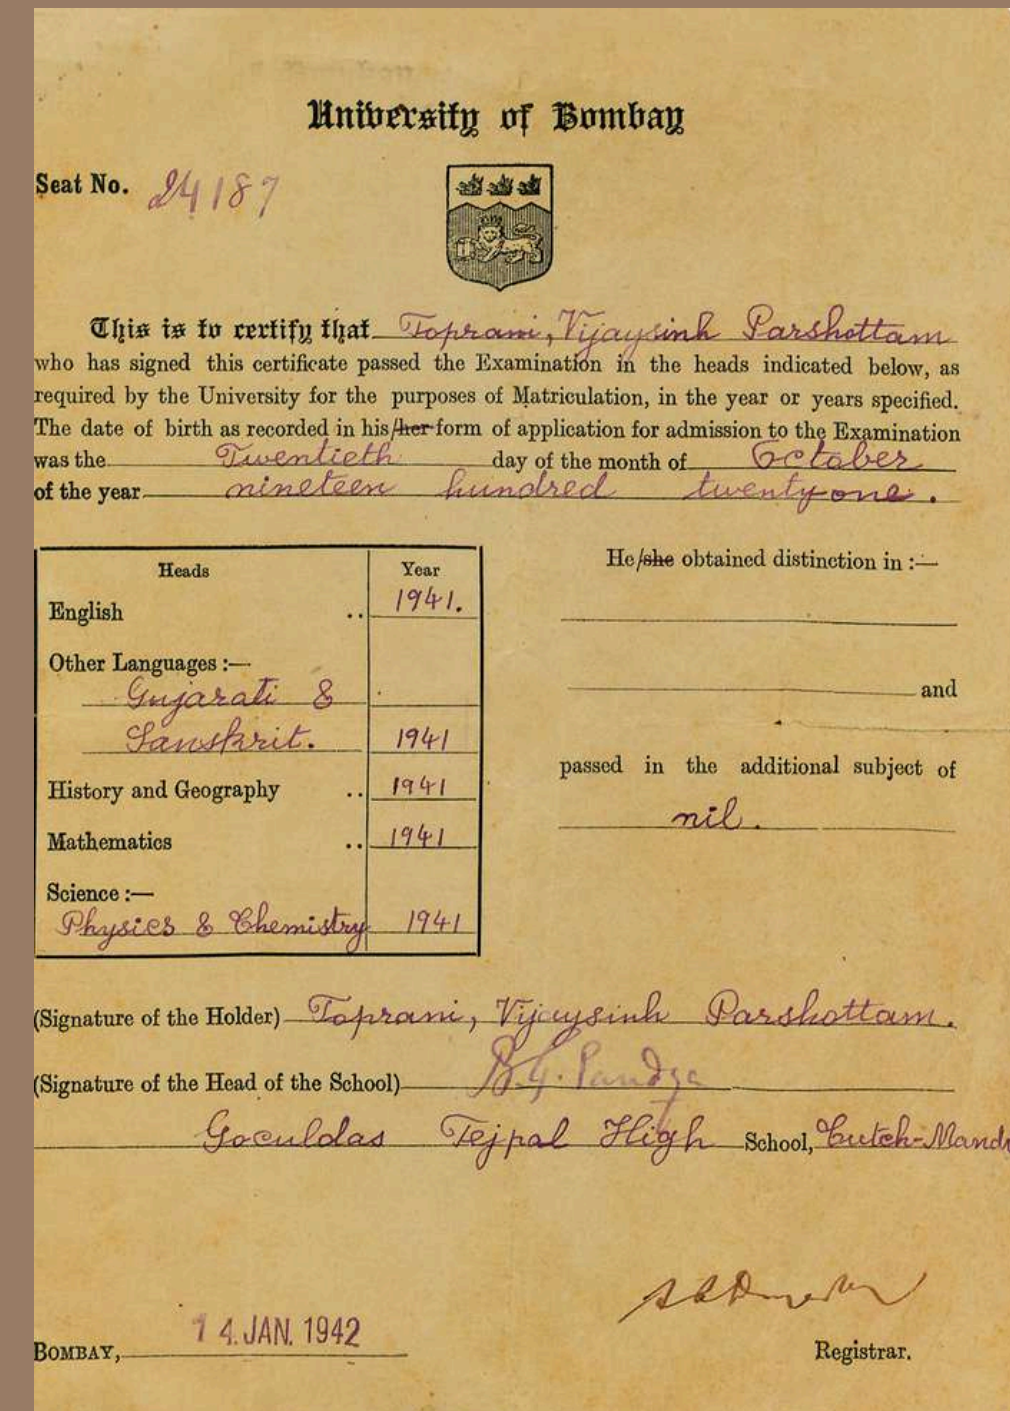 University of Bombay
Seat No. 24187
This is to certify that Toprani, Vijaysinh Parshottam
who has signed this certificate passed the Examination in the heads indicated below, as
required by the University for the purposes of Matriculation, in the year or years specified.
The date of birth as recorded in his/her form of application for admission to the Examination
was the Twentieth day of the month of October
of the year nineteen hundred twenty one.
Heads Year
English .. 1941.
Other Languages :—
Gujarati &
Sanskrit. 1941
History and Geography .. 1941
Mathematics .. 1941
Science :—
Physics & Chemistry 1941
He/she obtained distinction in :—
and
passed in the additional subject of
nil.
(Signature of the Holder) Toprani, Vijaysinh Parshottam.
(Signature of the Head of the School) B.G. Pandya
Goculdas Tejpal High School, Cutch-Mand
BOMBAY, 14 JAN. 1942
Registrar.